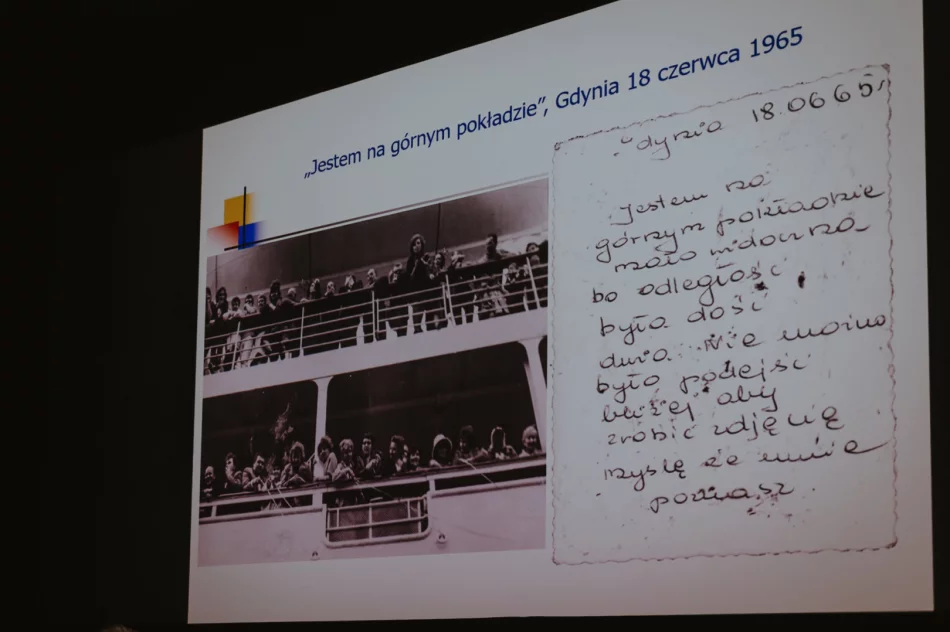 „Jestem na górnym pokładzie”, Gdynia 18 czerwca 1965
Gdynia 18.06 65r
Jestem na
górnym pokładzie
mało widoczna
bo odległość
była dość
duża. Nie można
było podejść
bliżej aby
zrobić zdjęcię
myślę że mnie
poznasz.